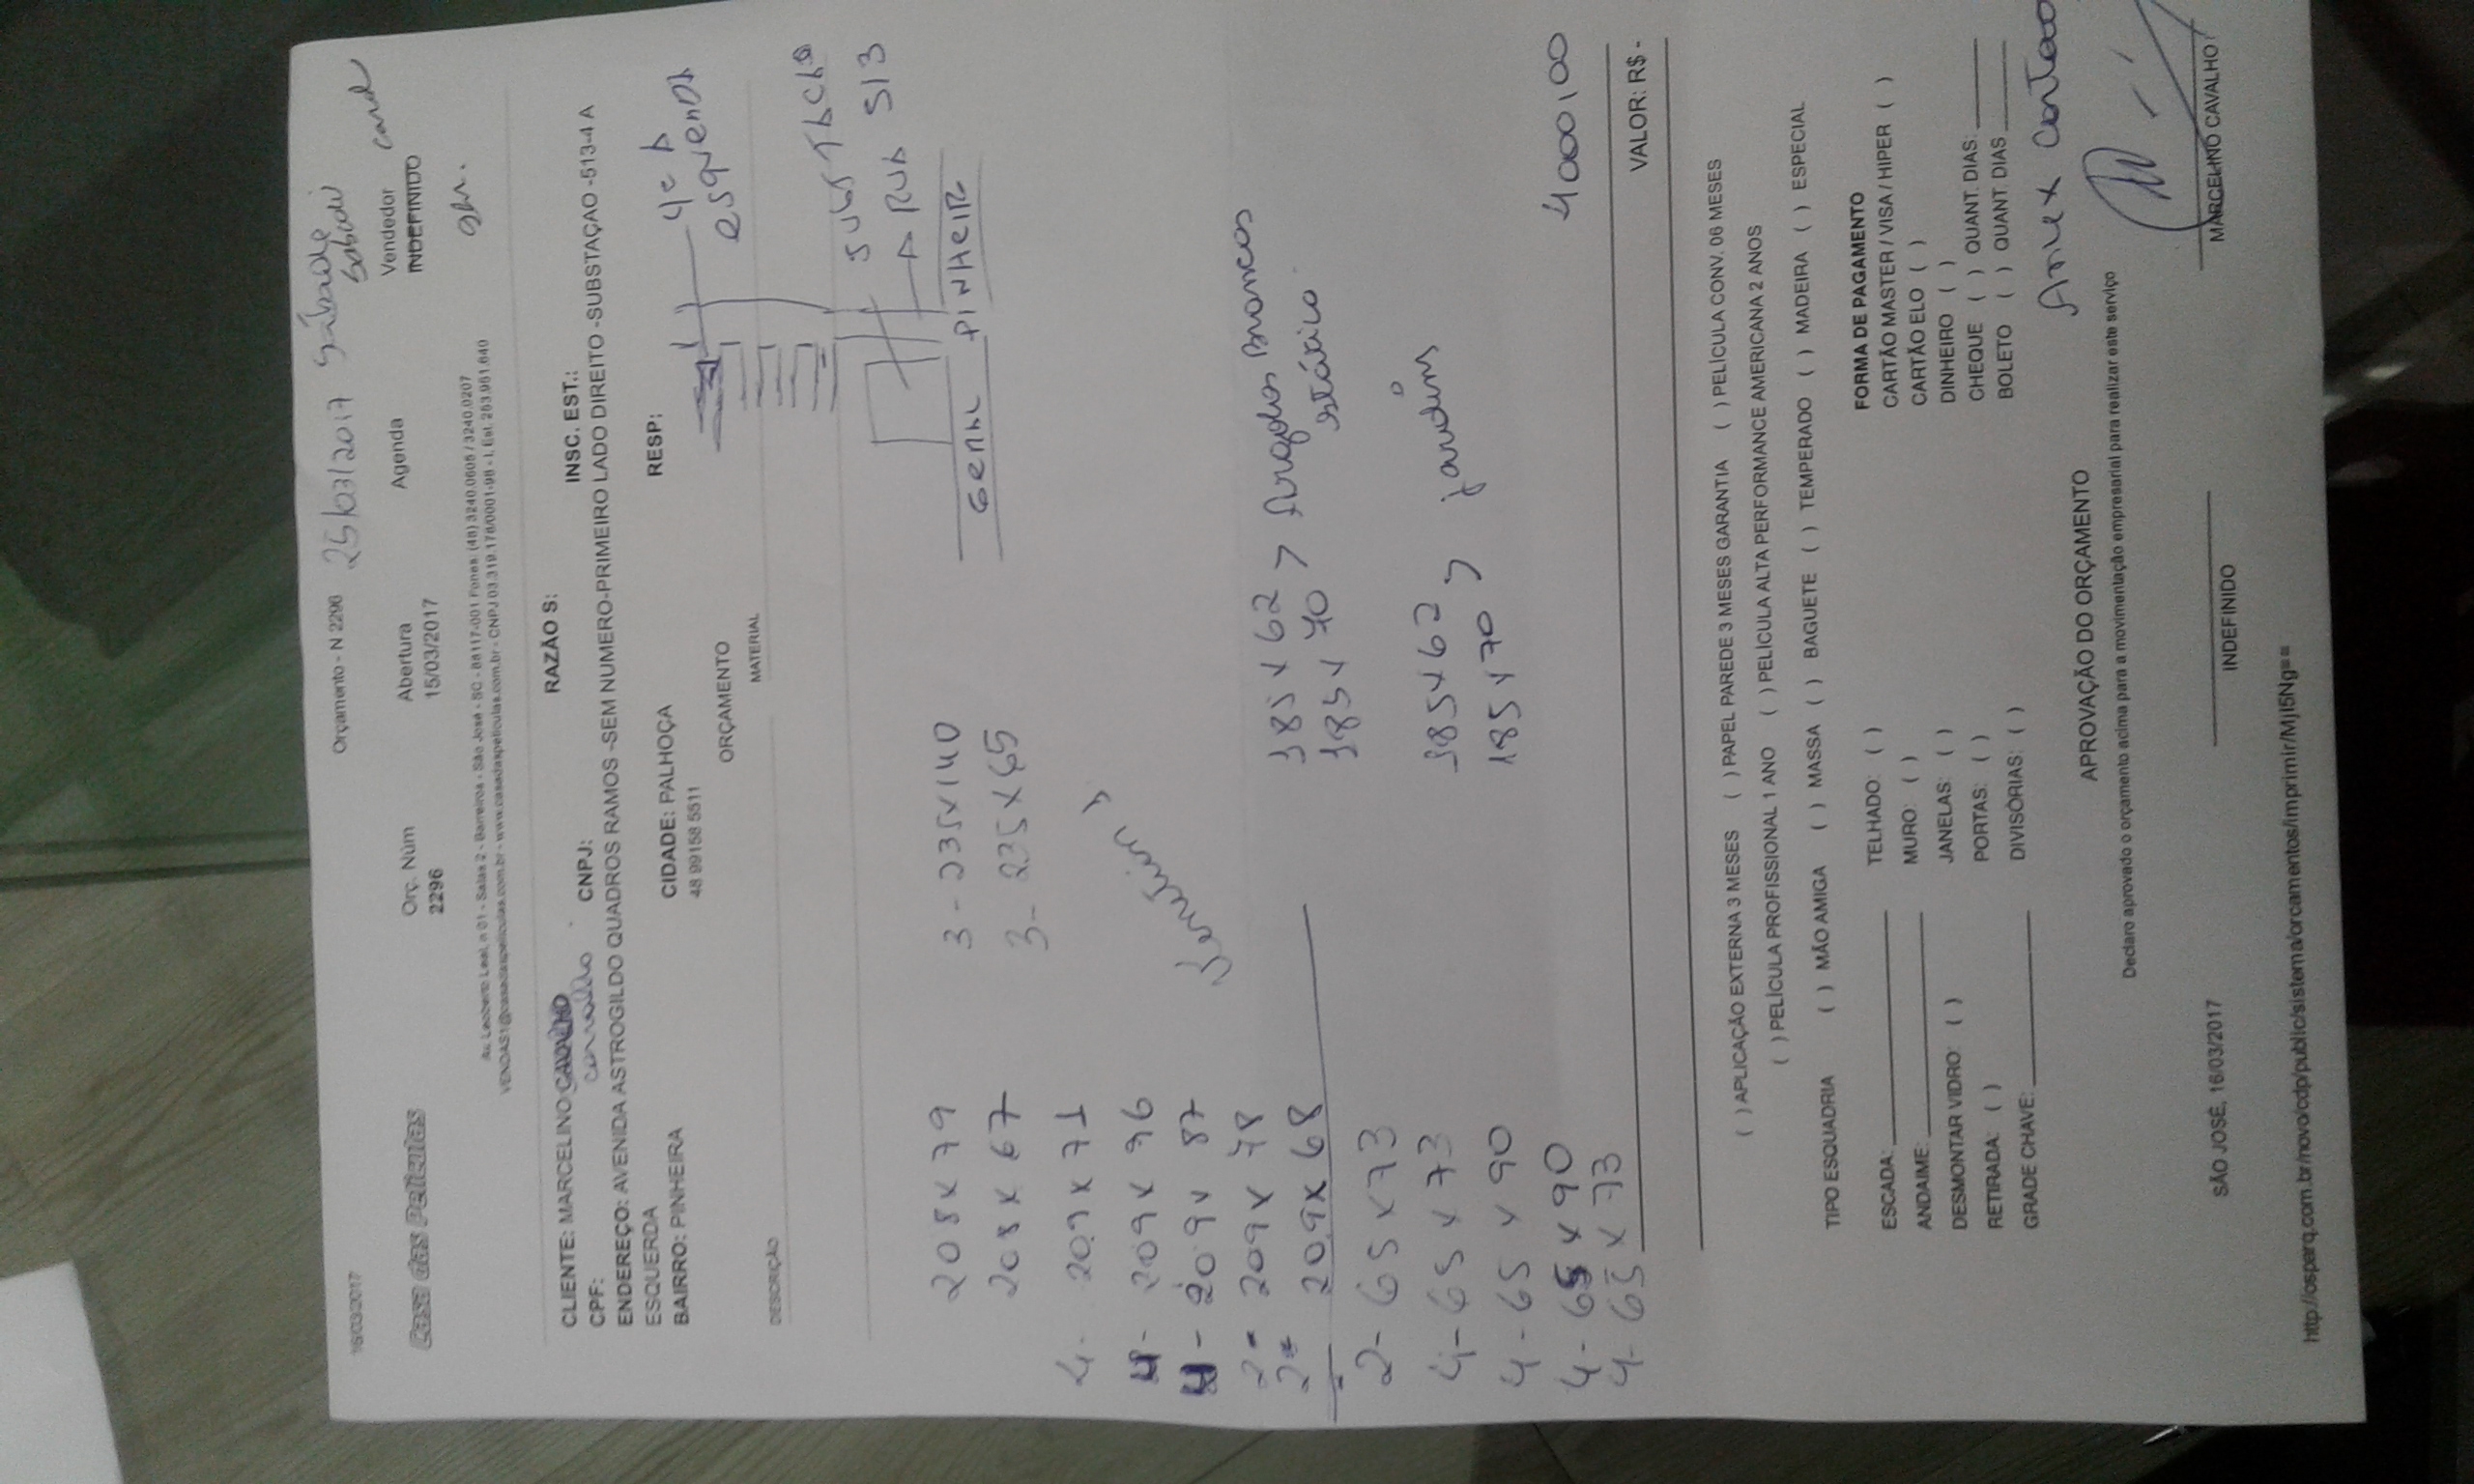 16/03/2017
Orçamento - N 2296 25/03/2017 Sábado
Casa das Películas
Orç. Núm
2296
Abertura
15/03/2017
Agenda
Vendedor
INDEFINIDO
Av. Leoberto Leal, n 01 - Salas 2 - Barreiros - São José - SC - 88117-001 Fones: (48) 3240.0605 / 3240.0207
VENDAS1@casadaspeliculas.com.br - www.casadaspeliculas.com.br - CNPJ 03.319.178/0001-98 - I. Est. 253.961.640
CLIENTE: MARCELINO
RAZÃO S:
carvalho
CPF:
CNPJ:
INSC. EST.:
ENDEREÇO: AVENIDA ASTROGILDO QUADROS RAMOS -SEM NUMERO-PRIMEIRO LADO DIREITO -SUBSTAÇAO -513-4 A
ESQUERDA
BAIRRO: PINHEIRA
CIDADE: PALHOÇA
RESP:
48 99158 5511
4ª A
esquenda
ORÇAMENTO
DESCRIÇÃO
MATERIAL
A RUA 513
GERAL PINHEIR
208 x 79
3 - 235 x 140
208 x 67
3 - 235 x 65
4 - 209 x 71
4 - 209 x 96
4 - 209 x 87
2 - 209 x 48
2 - 209 x 68
185 x 62
185 x 40
Brancos
2 - 65 x 73
4 - 65 x 73
4 - 65 x 90
4 - 65 x 90
4 - 65 x 73
185 x 62
185 x 70
jardim
4000,00
VALOR: R$ -
( ) APLICAÇÃO EXTERNA 3 MESES ( ) PAPEL PAREDE 3 MESES GARANTIA ( ) PELÍCULA CONV. 06 MESES
( ) PELÍCULA PROFISSIONAL 1 ANO ( ) PELÍCULA ALTA PERFORMANCE AMERICANA 2 ANOS
TIPO ESQUADRIA ( ) MÃO AMIGA ( ) MASSA ( ) BAGUETE ( ) TEMPERADO ( ) MADEIRA ( ) ESPECIAL
ESCADA:
TELHADO: ( )
ANDAIME:
MURO: ( )
DESMONTAR VIDRO: ( )
JANELAS: ( )
RETIRADA: ( )
PORTAS: ( )
GRADE CHAVE:
DIVISÓRIAS: ( )
FORMA DE PAGAMENTO
CARTÃO MASTER / VISA / HIPER ( )
CARTÃO ELO ( )
DINHEIRO ( )
CHEQUE ( ) QUANT. DIAS:
BOLETO ( ) QUANT. DIAS
APROVAÇÃO DO ORÇAMENTO
Declaro aprovado o orçamento acima para a movimentação empresarial para realizar este serviço
SÃO JOSÉ, 16/03/2017
INDEFINIDO
MARCELINO CAVALHO
http://osparq.com.br/novo/cdp/public/sistema/orcamentos/imprimir/MjI5Ng==